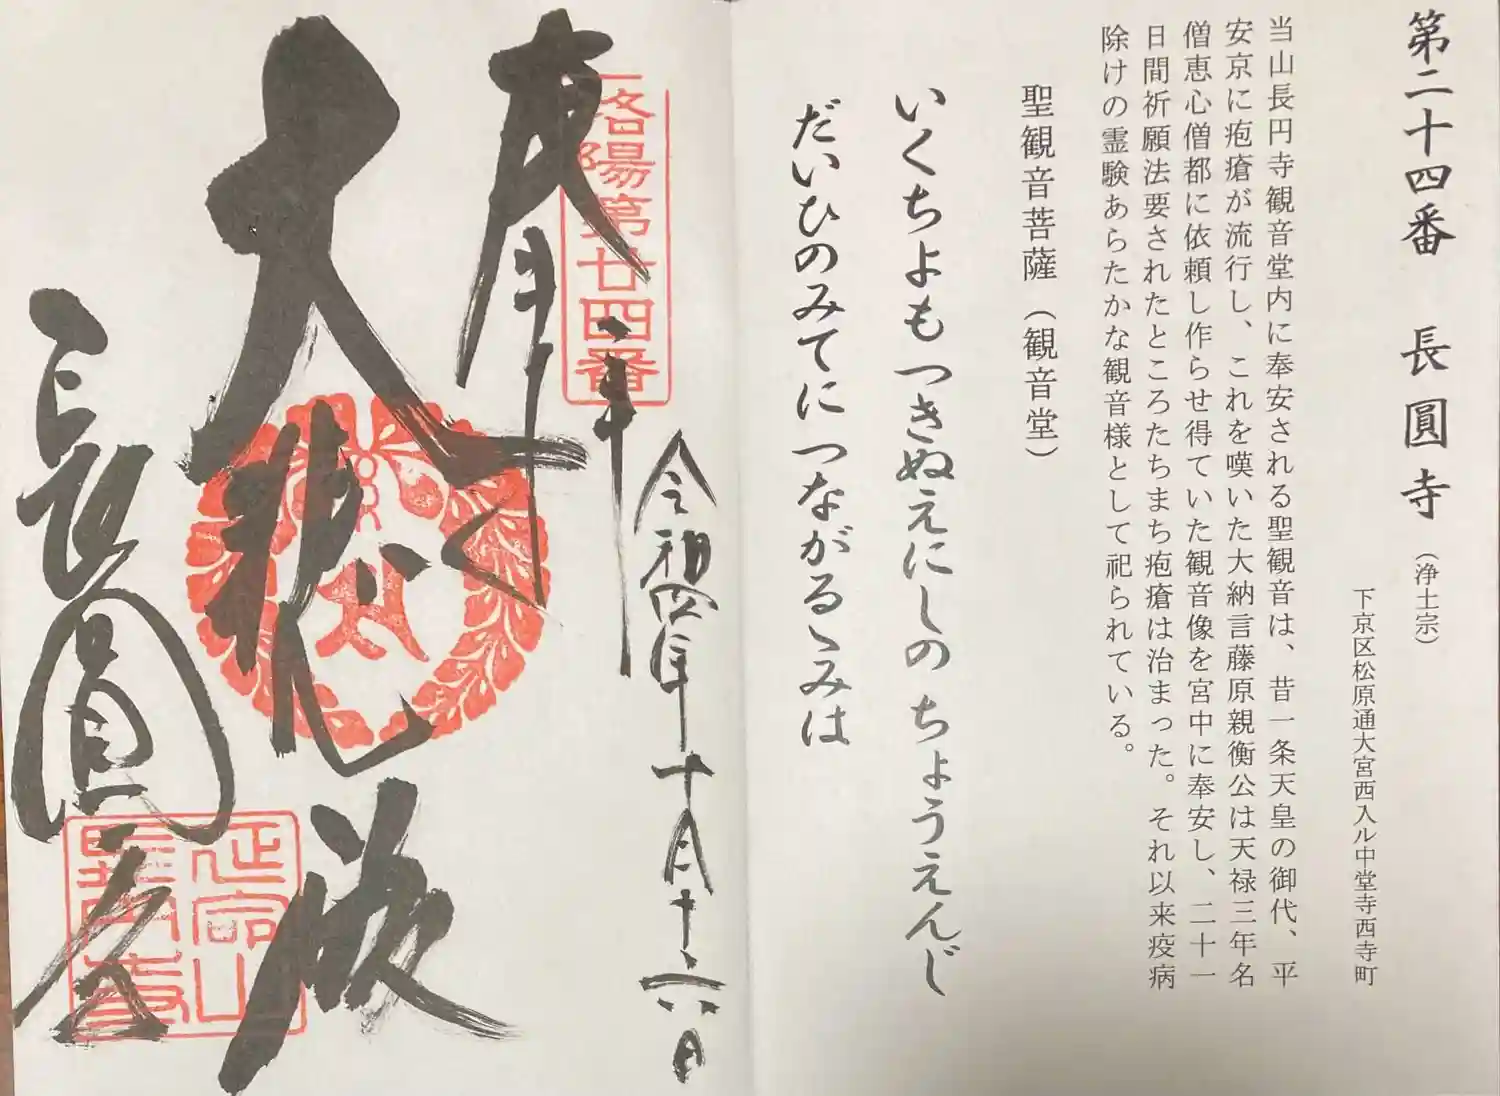 第二十四番 長圓寺(浄土宗)
下京区松原通大宮西入ル中堂寺西寺町
当山長円寺観音堂内に奉安される聖観音は、昔一条天皇の御代、平
安京に疱瘡が流行し、これを嘆いた大納言藤原親衡公は天禄三年名
僧恵心僧都に依頼し作らせ得ていた観音像を宮中に奉安し、二十一
日間祈願法要されたところたちまち疱瘡は治まった。それ以来疫病
除けの霊験あらたかな観音様として祀られている。
聖観音菩薩(観音堂)
いくちよもつきぬえにしのちょうえんじ
だいひのみてにつながるゝみは
洛陽第廿四番
令和四年十月十六日
奉拝
大悲殿
長圓寺
延命山